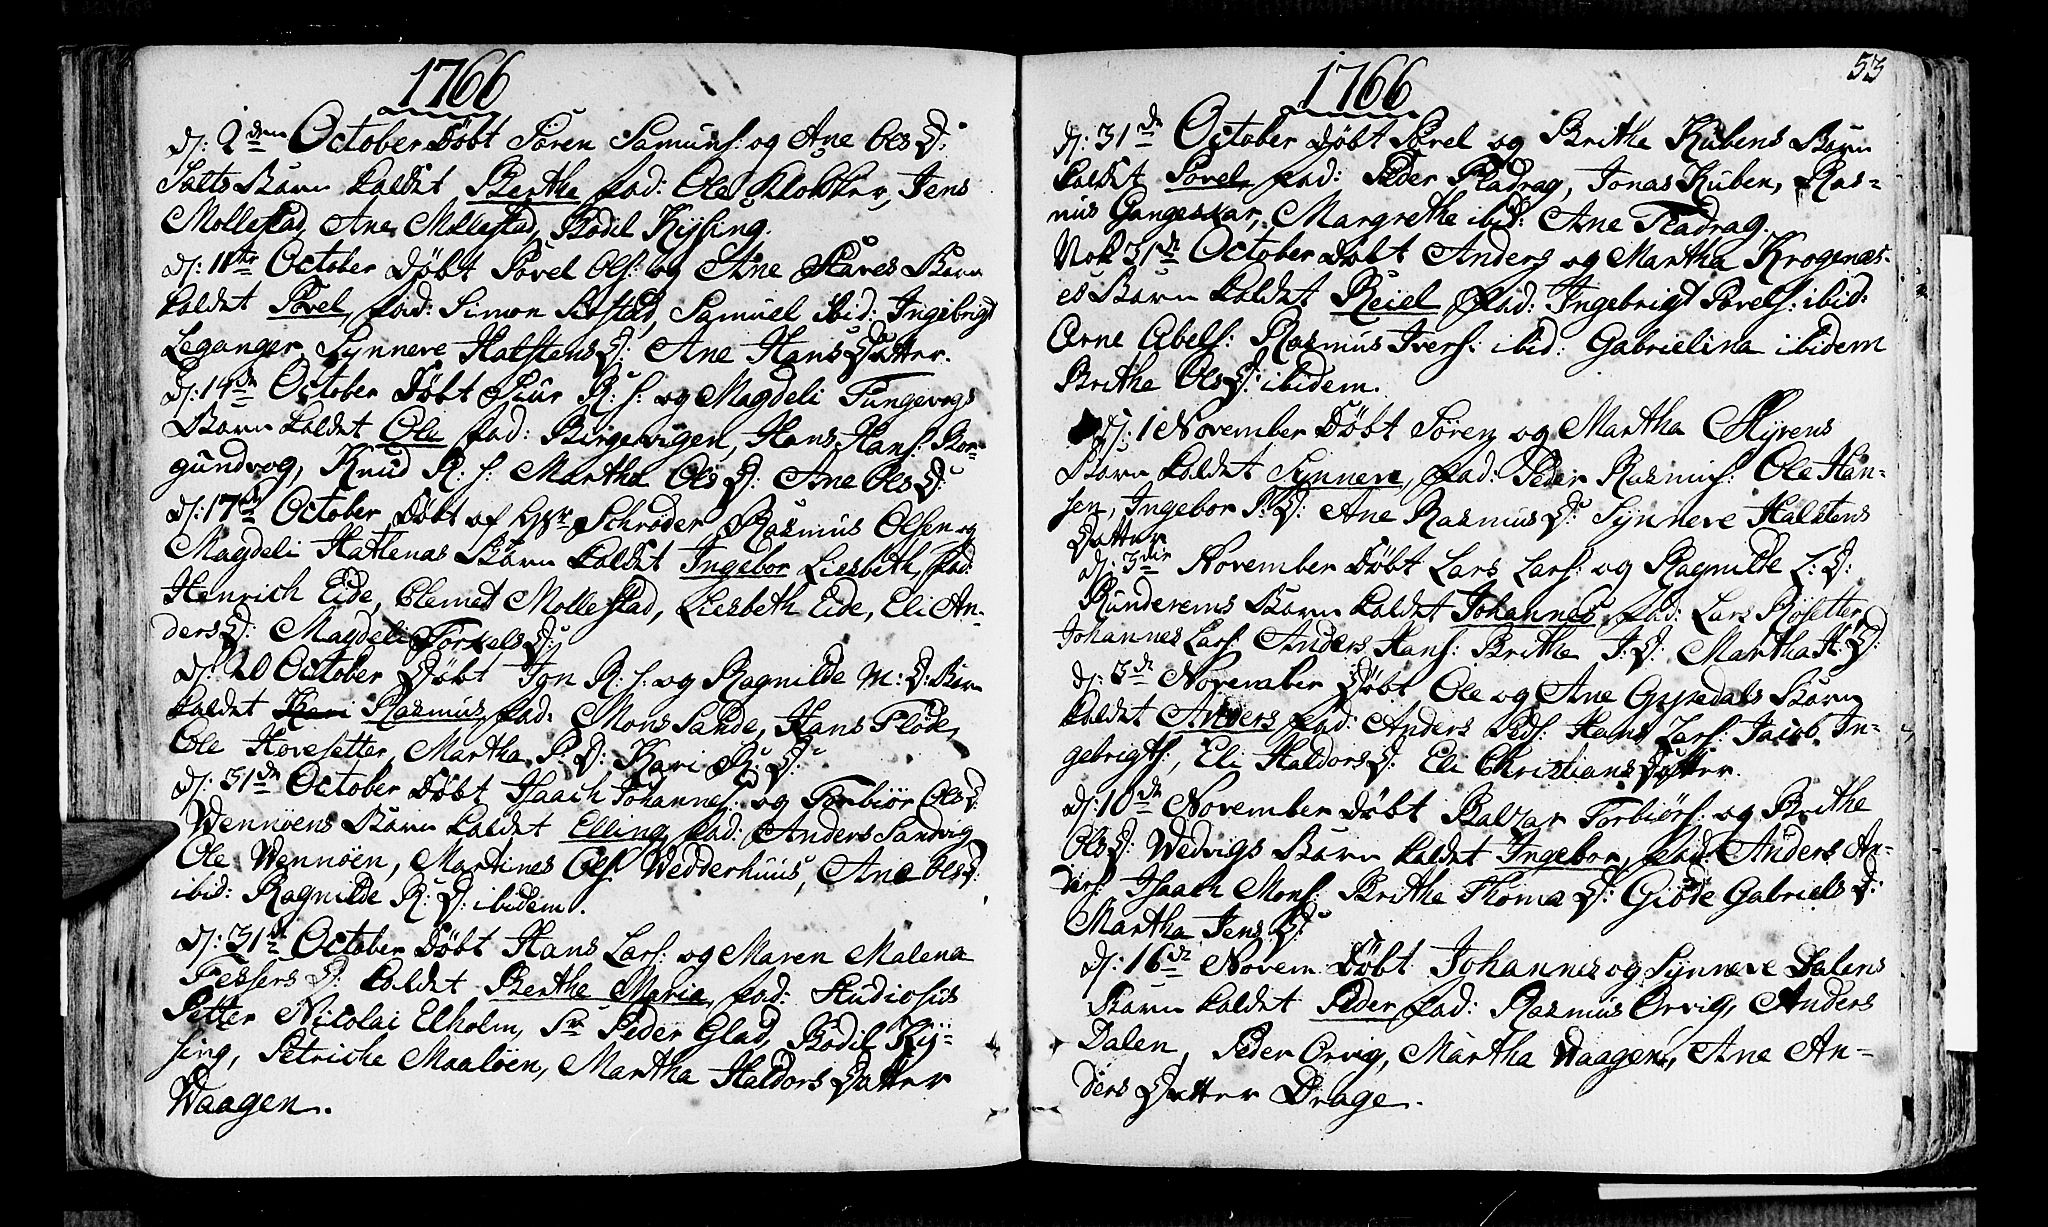 1766
d: 2den October Döbt Sören Samuns: og Ane Ols D:
Salts Barn kaldet Berthe fad: Ole Klokker, Jens
Mollestad, Ane Mollestad, Bodil Kysing.
d: 11te October Döbt Povel Ols: og Ane Staves Barn
kaldet Povel, fad: Simon Listad, Samuel ibid: Ingebrigt
Leganger, Synneve Halstens D: Ane Hans Datter.
d: 14de October Döbt Siur R: s: og Magdeli Tungevogs
Barn kaldet Ole fad: Birgevigen, Hans Hans: Bor-
gundvog, Knud R: s: Martha Ols D: Ane Ols D:
d: 17de October Döbt af Hr Schröder Rasmus Olsen og
Magdeli Hathenas Barn kaldet Ingebor Liesbeth, fad:
Henrich Eide, Clemet Mollestad, Liesbeth Eide, Eli An-
ders D: Magdeli Torkels D:
d: 20 October Döbt Jon R: s: og Ragnilde M: D: Barn
kaldet Kari Rasmus, fad: Mons Sande, Hans Flöde,
Ole Hovesetter, Martha P: D: Kari R: D:
d: 31de October Döbt Isaach Johannes: og Torbiör Ols D:
Wennöens Barn kaldet Elling fad: Anders Sandvig
Ole Wennöen, Martines Ols: Wedderhuus, Ane Ols D:
ibid: Ragnilde R: D: ibidem.
d: 31de October Döbt Hans Lars: og Maren Malena
Fessers D: kaldet Berthe Maria, fad: Studiosus
Petter Nicolai Elholm, Sr Peder Glad, Bodil Ky-
sing, Petriche Maalöen, Martha Haldors Datter
Waagen.
1766
53
d: 31de October Döbt Povel og Brithe Kubens Barn
kaldet Povel, fad: Peder Fladrag, Jonas Kuben, Ras-
mus Gangeskar, Margrethe ibid: Ane Fladrag.
Nok 31de October Döbt Anders og Martha Krogenæs-
es Barn kaldet Reiel fad: Ingebrigt Povels: ibid:
Arne Abels: Rasmus Ivers: ibid: Gabrielina ibidem
Brithe Ols D: ibidem.
d: 1 November Döbt Sören og Martha Myrens
Barn kaldet Synneve, fad: Peder Rasmus: Ole Han-
sen, Ingebor P: D: Ane Rasmus D: Synneve Halstens
Datter
d: 3die November Döbt Lars Lars: og Ragnilde L: D:
Runderems Barn kaldet Johannes, fad: Lars Rösetter,
Johannes Lars: Anders Hans: Brithe J: D: Martha H: D:
d: 3de November Döbt Ole og Ane Gysedals Barn
kaldet Anders fad: Anders Peds: Hans Lars: Jacob In-
gebrigts:, Eli Haldors D: Eli Christians Datter.
d: 10de November Döbt Balzar Torbiörs: og Brithe
Ols D: Wedvigs Barn kaldet Ingebor, fad: Anders An-
ders: Isaach Mons: Brithe Thoma D: Giöde Gabriels D:
Martha Jens D:
d: 16de Novem Döbt Johannes og Synneve Dalens
Barn kaldet Peder fad: Rasmus Orvig, Anders
Dalen, Peder Orvig, Martha Waagen, Ane An-
ders Datter Drage.